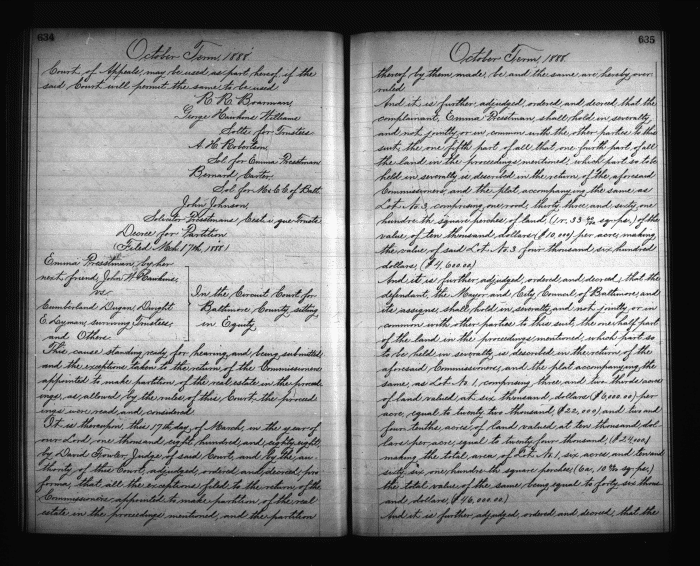 634
October Term, 1888
Court of Appeals, may be used as part hereof if the
said Court will permit the same to be used
George Hawkins Williams
Solts for Trustees
A. H. Robertson,
Sol for Emma Prestman
Bernard Carter,
Sol for M & C. C. of Balt
John Johnson,
Solicitor Prestmans Cestui que Trusts
Decree for Partition
Filed Mch 17th, 1888
Emma Prestman, by her
next friend, John W. Hawkins,
vs.
Cumberland Dugan, Dwight
E. Lyman, surviving Trustees,
and Others
In the Circuit Court for
Baltimore County, sitting
in Equity
This cause standing ready for hearing, and being submitted
and the exceptions taken to the return of the Commissioners
appointed to make partition of the real estate in the proceed
ings, as allowed by the rules of this Court, the proceed
ings were read, and considered
It is thereupon, this 17th day of March, in the year of
our Lord, one thousand eight hundred, and eighty eight,
by David Fowler, Judge of said Court, and by the au
thority of this Court, adjudged, ordered and decreed, pro
forma, that all the exceptions filed to the return of the
Commissioners appointed to make partition, of the real
estate in the proceedings mentioned, and the partition
635
October Term, 1888
thereof by them made, be and the same are, hereby over
ruled
And it is further adjudged, ordered, and decreed that the
complainant, Emma Prestman, shall hold in severalty,
and not jointly, or in common with the other parties to this
suit, the one fifth part of all that one fourth part of all
the land in the proceedings mentioned, which part so to be
held in severalty is described in the return of the aforesaid
Commissioners, and the plat, accompanying the same, as
Lot No 3, comprising, one rood, thirty three and sixty, one
hundredth square perches, of land, of the
value of ten thousand dollars ($10,000) per acre, making
the value of said Lot No 3 four thousand six hundred
dollars, ($4,600.00)
And it is further, adjudged, ordered, and decreed, that the
defendant, the Mayor and City Council of Baltimore, and
its assigns, shall hold in severalty, and not jointly, or in
common with other parties to this suit, the one half part
of the land in the proceedings mentioned, which part so
to be held in severalty, is described in the return of the
aforesaid Commissioners, and the plat accompanying the
same, as Lot No 1, comprising three and two thirds acres
of land valued at six thousand dollars ($6,000.00) per
acre, equal to twenty two thousand, ($22,000) and two and
four tenths, acres of land valued at ten thousand dol
lars per acre, equal to twenty four thousand, ($24,000)
making the total area, of Lot No 1, six acres, and ten and
sixty six one hundredth square perches,
the total value of the same being equal to forty six thous
and dollars, ($46,000.00)
And it is further, adjudged, ordered and decreed, that the